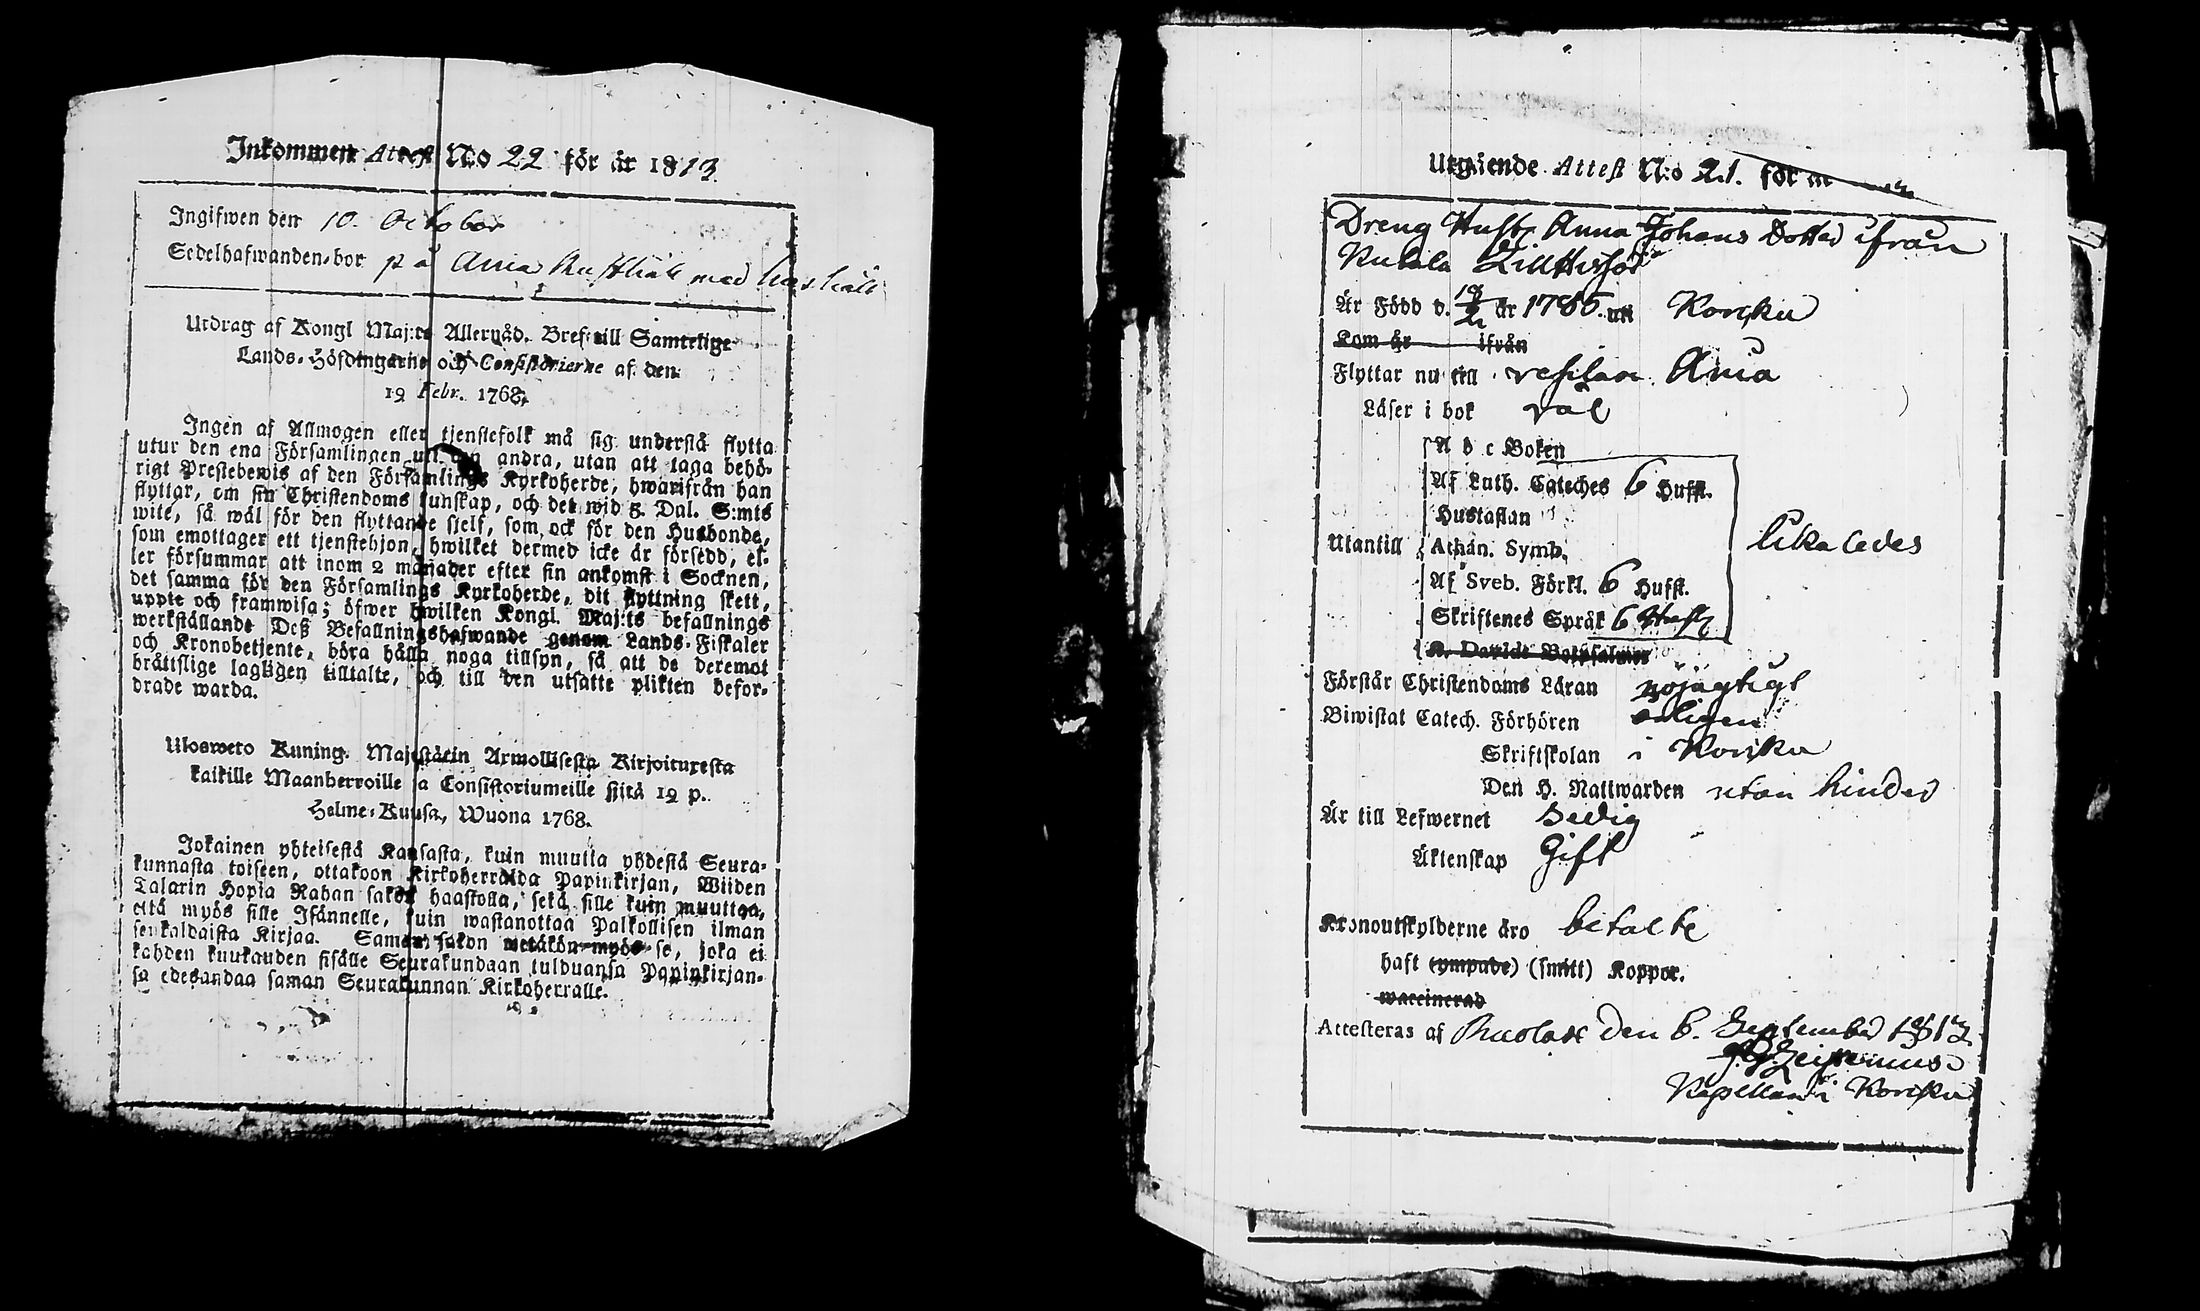 Inkommen Attest N:o 22 för år 1813
Ingifwen den 10. October
Sedelhafwanden bor på Ania Rusthåll med
Utdrag af Kongl Maj:ts Allernåd. Bref till Samtelige
Lands-Höfdingarne och Consistorierne af den
19 Febr. 1768.
Ingen af Allmogen eller tjenstefolk må sig understå flytta
utur den ena Församlingen till den andra, utan att taga behö-
rigt Prestebewis af den Församlings Kyrkoherde, hwarifrån han
flyttar, om sin Christendoms kunskap, och det wid 5. Dal. S:mts
wite, så wäl för den flyttande sjelf, som ock för den Husbonde,
som emottager ett tjenstehjon, hwilket dermed icke är försedd, el-
ler försummar att inom 2 månader efter sin ankomst i Socknen,
det samma för den Församlings Kyrkoherde, dit flyttning skett,
uppte och framwisa; öfwer hwilken Kongl. Maj:ts befallnings
werkställande Deß Befallningshafwande genom Lands-Fiskaler
och Kronobetjente, böra hålla noga tillsyn, så att de deremot
bråttslige lagligen tilltalte, och till den utsatte plikten befor-
drade warda.
Ulosweto Kuning. Majestätin Armollisesta Kirjoituxesta
kaikille Maanherroille ja Consistoriumeille siitä 19 p.
Helme-Kuusa, Wuona 1768.
Jokainen yhteisestä Kansasta, kuin muutta yhdestä Seura-
kunnasta toiseen, ottakoon Kirkoherralda Papinkirjan, Wiiden
Talarin Hopia Rahan sakon haastolla, sekä sille kuin muuttaa,
että myös sille Isännelle, kuin wastanottaa Palkollisen ilman
senkaldaista Kirjaa. Saman sakon wetäkön myös se, joka ei
kahden kuukauden sisälle Seurakundaan tulduansa Papinkirjan-
sa edesandaa saman Seurakunnan Kirkoherralle.
Utgående Attest N:o 21. för år
Dreng Hustr Anna Johans Dotter ifrån
Kulala
Är Född d. 18/2 år 1785. uti Koriskis
Kom år ifrån
Flyttar nu till Ania
Läser i bok väl
A b c Boken
Af Luth. Cateches 6 Hufst.
Hustaflan
Utantill Athan. Symb. likaledes
Af Sveb. Förkl. 6 Hufst.
Skriftenes Språk 6 Hufst
K. Davids Botpsalmer
Förstår Christendoms Läran nöjagtigt
Biwistat Catech. Förhören årligen
Skriftskolan i
Den H. Nattwarden utan hinder
Är till Lefwernet Sedig
Äktenskap Gift
Kronoutskylderne äro betalte
haft (ympade) (smitt) Koppor.
waccinerad
Attesteras af den 6. September 1813
Kapellan i